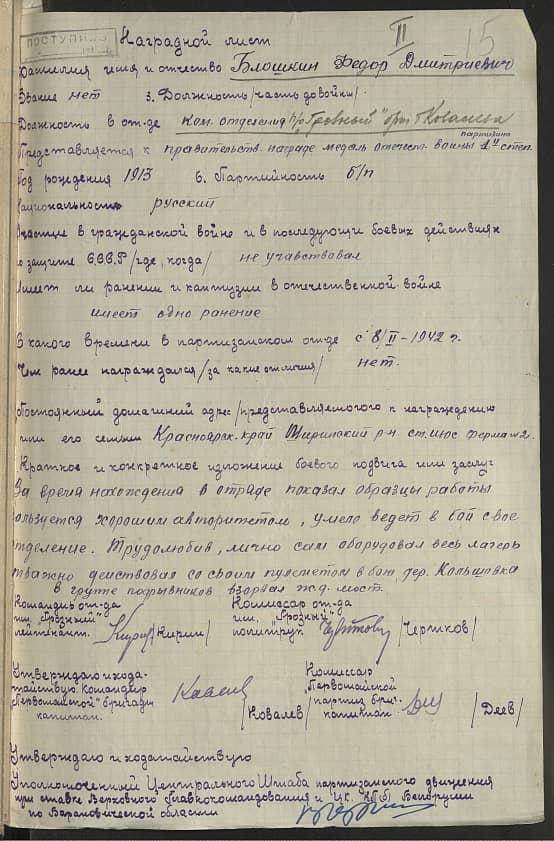 ПОСТУПИЛ
II
15
Наградной лист
Фамилия имя и отчество Блошкин Федор Дмитриевич
Звание нет 3. Должность /часть довойны/
Должность в от-де ком. отделения п/о "Грозный" бриг. Ковалева
Представляется к правительств. награде медаль отечеств. войны 1й степ.
партизана
Год рождения 1913 6. Партийность б/п
Национальность русский
Участие в гражданской войне и в последующи боевых действиях
по защите С.С.С.Р /где, когда/ не учавствовал
Имеет ли ранении и кантузии в отечественной войне
имеет одно ранение
С какого времени в партизанском от-де с 8/II-1942 г.
Чем ранее награждался /за какие отличия/ нет.
Постоянный домашний адрес /представляемого к награждению
или его семьи Красноярск. край Ширинский р-н. ст. июс ферма №2.
Краткое и конкретное изложение боевого подвига или заслуг
За время нахождения в отряде показал образцы работы
пользуется хорошим авторитетом, умело ведет в бой свое
отделение. Трудолюбив, лично сам оборудовал весь лагерь
отважно действовал со своим пулеметом в бою, дер. Кольчовка
в группе подрывников взорвал ж.д. мост.
Командир от-да
им. "Грозный"
лейтенант. /Кирин/
Комиссар от-да
им. "Грозный"
политрук /Чертков/
Утверждаю и хода-
тайствую. Командир
"Первомайской" бригады
капитан. /Ковалев/
Комиссар
"Первомайской"
партиз. бриг.
капитан /Деев/
Утверждаю и ходатайствую
Уполномоченный Центрального Штаба партизанского движения
при ставке Верховного Главнокомандования и Ц.К. КП(б) Белорусии
по Барановической области